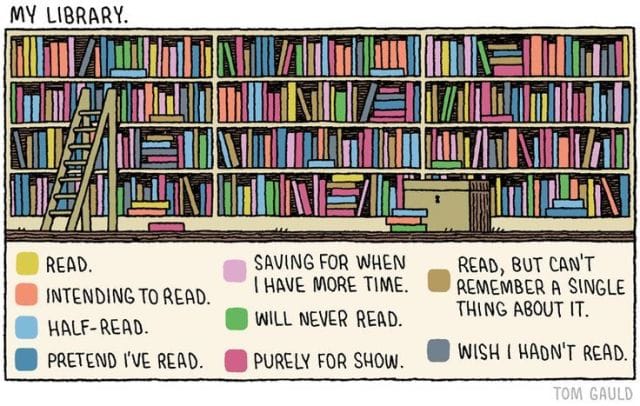 MY LIBRARY.
READ.
INTENDING TO READ.
HALF-READ.
PRETEND I'VE READ.
SAVING FOR WHEN
I HAVE MORE TIME.
WILL NEVER READ.
PURELY FOR SHOW.
READ, BUT CAN'T
REMEMBER A SINGLE
THING ABOUT IT.
WISH I HADN'T READ.
TOM GAULD